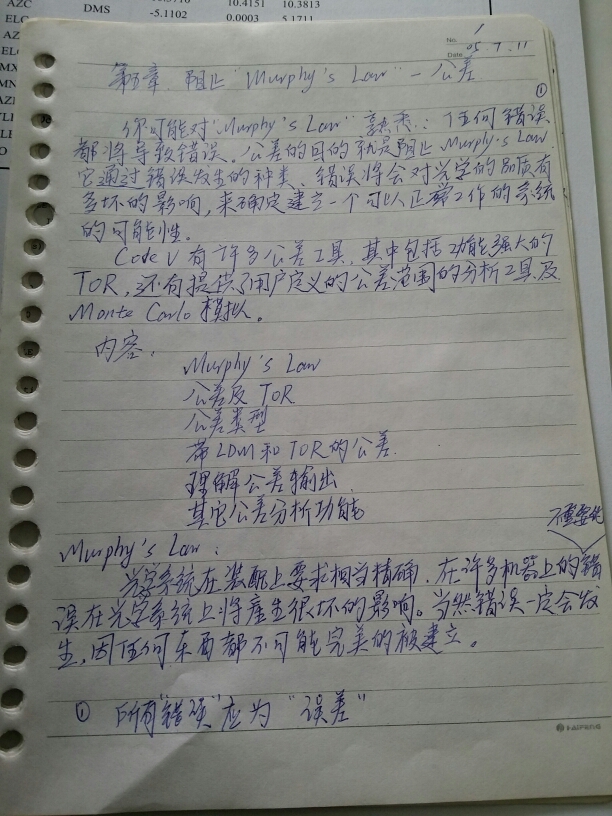 AZC 10.4151 10.3813
ELC DMS -5.1102 0.0003 5.1711
No. 1
Date 05.7.11
第五章. 阻止"Murphy's Law" — 公差
①
你可能对"Murphy's Law"熟悉:任何错误
都将导致错误。公差的目的就是阻止Murphy's Law
它通过错误发生的种类、错误将会对光学的品质有
多坏的影响,来确定建立一个可以正常工作的系统
的可能性。
Code V 有许多公差工具,其中包括功能强大的
TOR,还有提供了用户定义的公差范围的分析工具及
Monte Carlo 模拟。
内容:
Murphy's Law
公差及TOR
公差类型
带LDM和TOR的公差
理解公差输出
其它公差分析功能
不重要的
Murphy's Law:
光学系统在装配上要求相当精确,在许多机器上的错
误在光学系统上将产生很坏的影响。当然错误一定会发
生,因任何东西都不可能完美的被建立。
① 所有"错误"应为"误差"